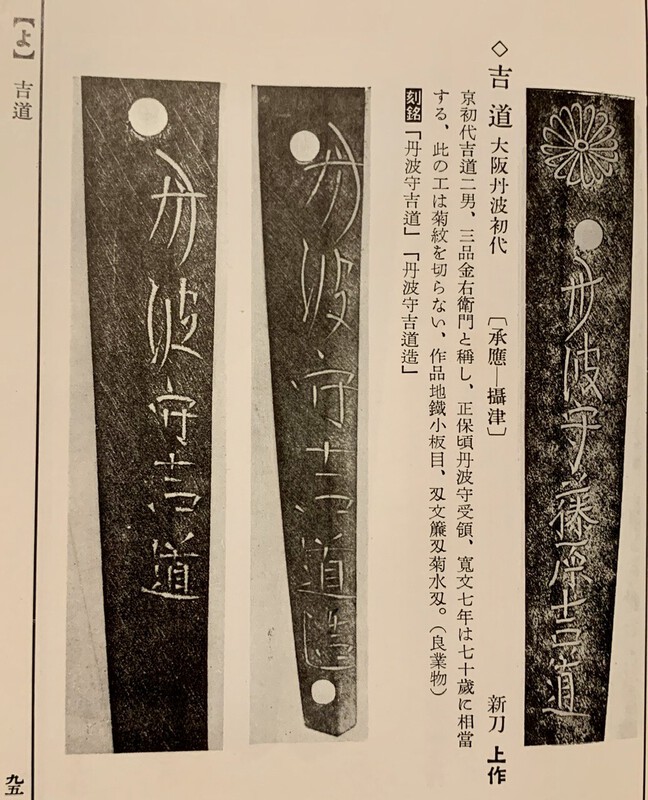 丹波守藤原吉道
◇吉道 大阪丹波初代 〔承應―攝津〕 新刀 上作
京初代吉道二男、三品金右衛門と稱し、正保頃丹波守受領、寬文七年は七十歲に相當
する、此の工は菊紋を切らない、作品地鐵小板目、刄文簾刄菊水刄。(良業物)
刻銘「丹波守吉道」「丹波守吉道造」
丹波守吉道造
丹波守吉道
【よ】 吉道
九五